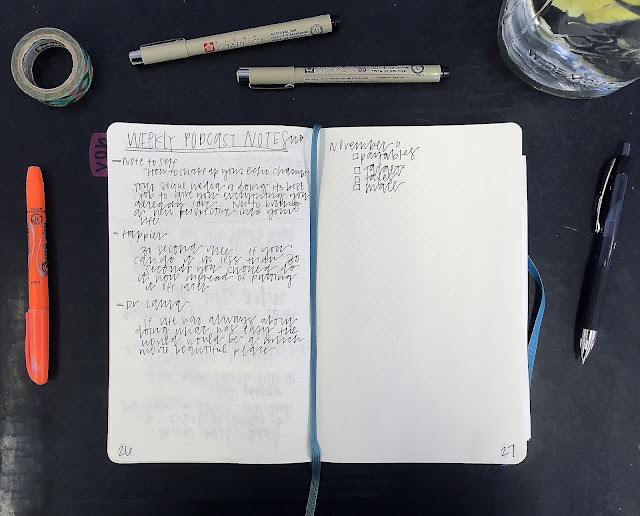 WEEKLY PODCAST NOTES
- Note to Self
How to snap up your echo chamber
Your social media is doing its best
to give you everything you
already love. Need to bring
a new perspective into your
life
- Happier
30 second rule. If you
can do it in less than 30
seconds you should do
it now instead of putting
it off later
- Dr. Laura
If life was always about
doing what was easy the
world would be a much
more beautiful place
26
November 11
payables
27
NOV